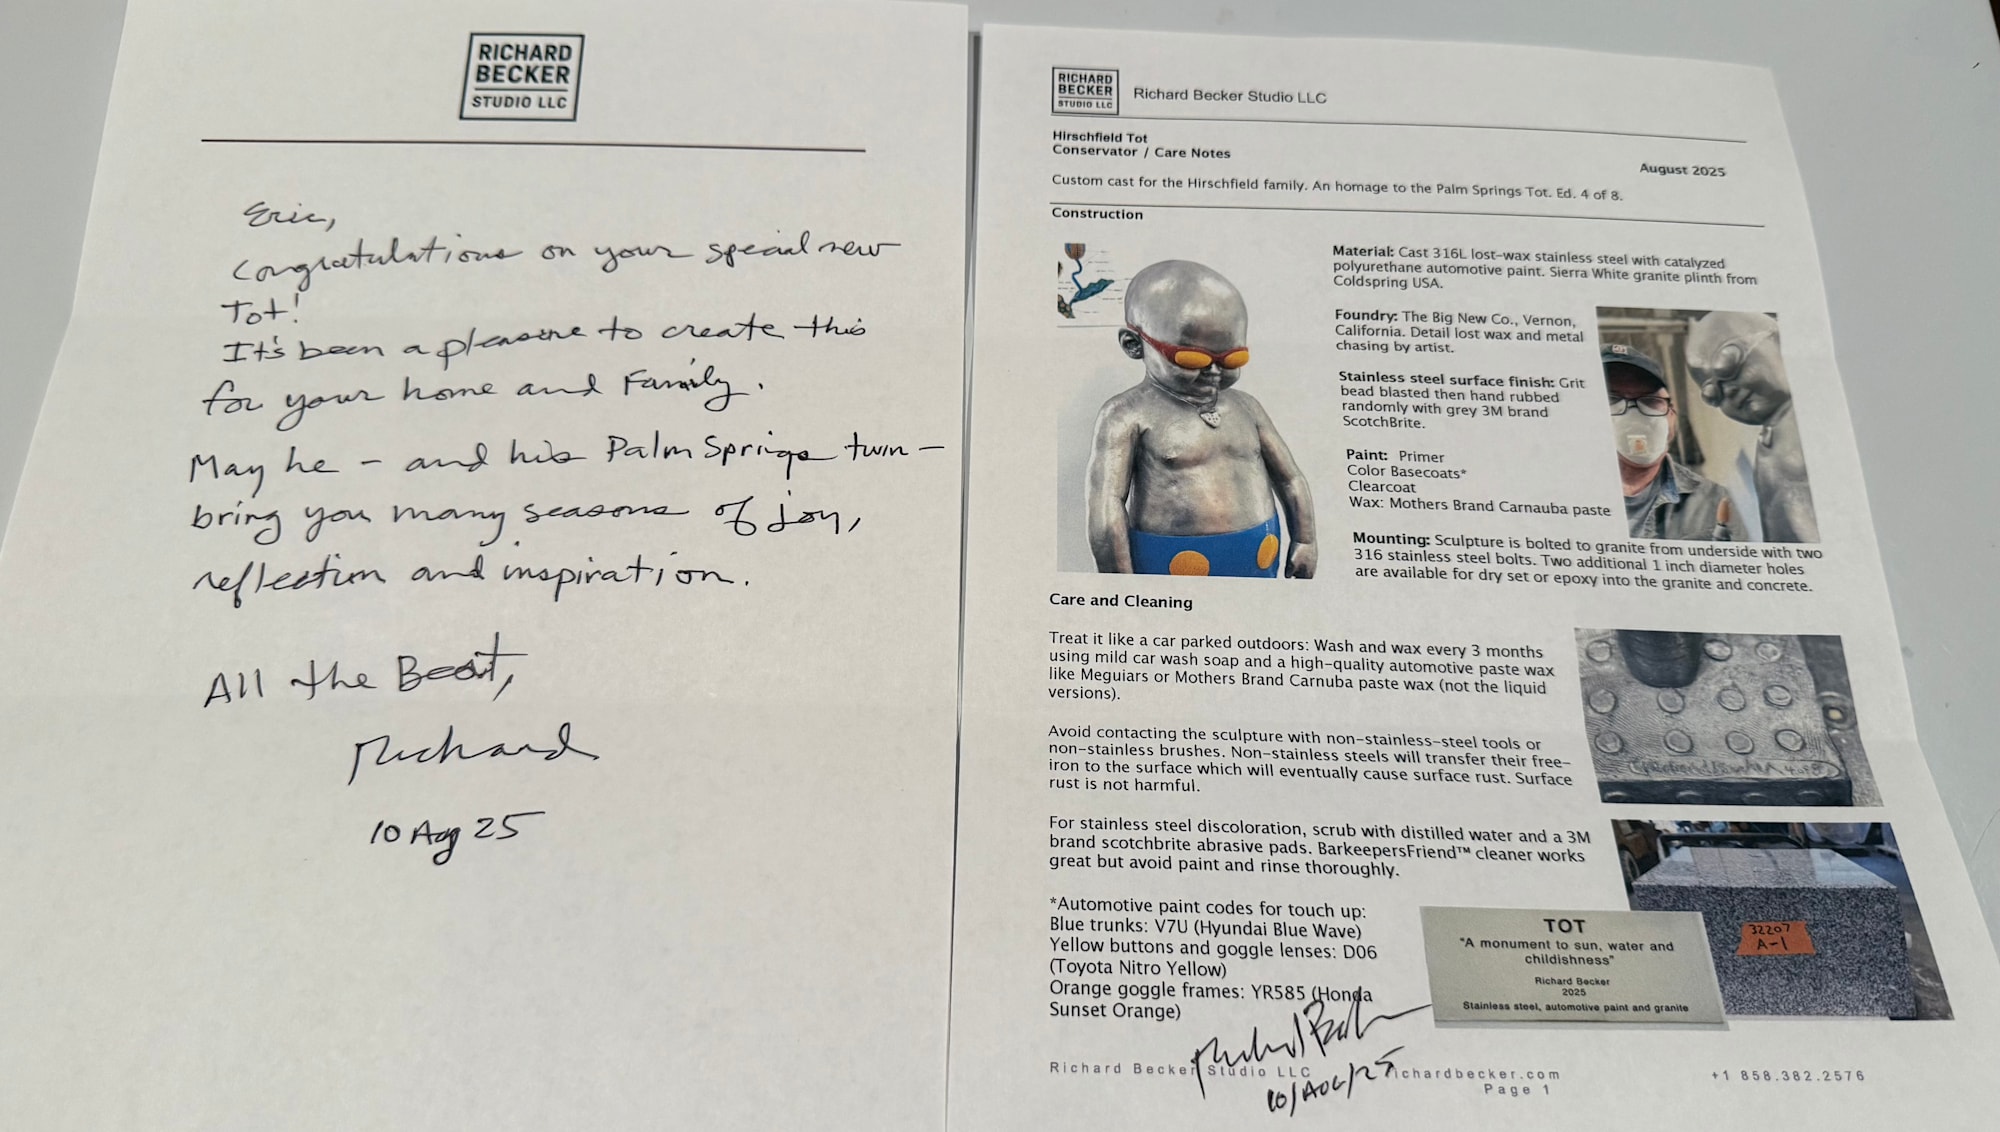 RICHARD
BECKER
STUDIO LLC
Eric,
Congratulations on your special new
Tot!
It's been a pleasure to create this
for your home and Family.
May he - and his Palm Springs twin -
bring you many seasons of joy,
reflection and inspiration.
All the Best,
Richard
10 Aug 25
RICHARD
BECKER
STUDIO LLC
Richard Becker Studio LLC
Hirschfield Tot
Conservator / Care Notes
August 2025
Custom cast for the Hirschfield family. An homage to the Palm Springs Tot. Ed. 4 of 8.
Construction
Material: Cast 316L lost-wax stainless steel with catalyzed
polyurethane automotive paint. Sierra White granite plinth from
Coldspring USA.
Foundry: The Big New Co., Vernon,
California. Detail lost wax and metal
chasing by artist.
Stainless steel surface finish: Grit
bead blasted then hand rubbed
randomly with grey 3M brand
ScotchBrite.
Paint: Primer
Color Basecoats*
Clearcoat
Wax: Mothers Brand Carnauba paste
Mounting: Sculpture is bolted to granite from underside with two
316 stainless steel bolts. Two additional 1 inch diameter holes
are available for dry set or epoxy into the granite and concrete.
Care and Cleaning
Treat it like a car parked outdoors: Wash and wax every 3 months
using mild car wash soap and a high-quality automotive paste wax
like Meguiars or Mothers Brand Carnuba paste wax (not the liquid
versions).
Avoid contacting the sculpture with non-stainless-steel tools or
non-stainless brushes. Non-stainless steels will transfer their free-
iron to the surface which will eventually cause surface rust. Surface
rust is not harmful.
For stainless steel discoloration, scrub with distilled water and a 3M
brand scotchbrite abrasive pads. BarkeepersFriend™ cleaner works
great but avoid paint and rinse thoroughly.
*Automotive paint codes for touch up:
Blue trunks: V7U (Hyundai Blue Wave)
Yellow buttons and goggle lenses: D06
(Toyota Nitro Yellow)
Orange goggle frames: YR585 (Honda
Sunset Orange)
32207
A-1
TOT
"A monument to sun, water and
childishness"
Richard Becker
2025
Stainless steel, automotive paint and granite
Richard Becker
10/AUG/25
Richard Becker Studio LLC
richardbecker.com
+1 858.382.2576
Page 1